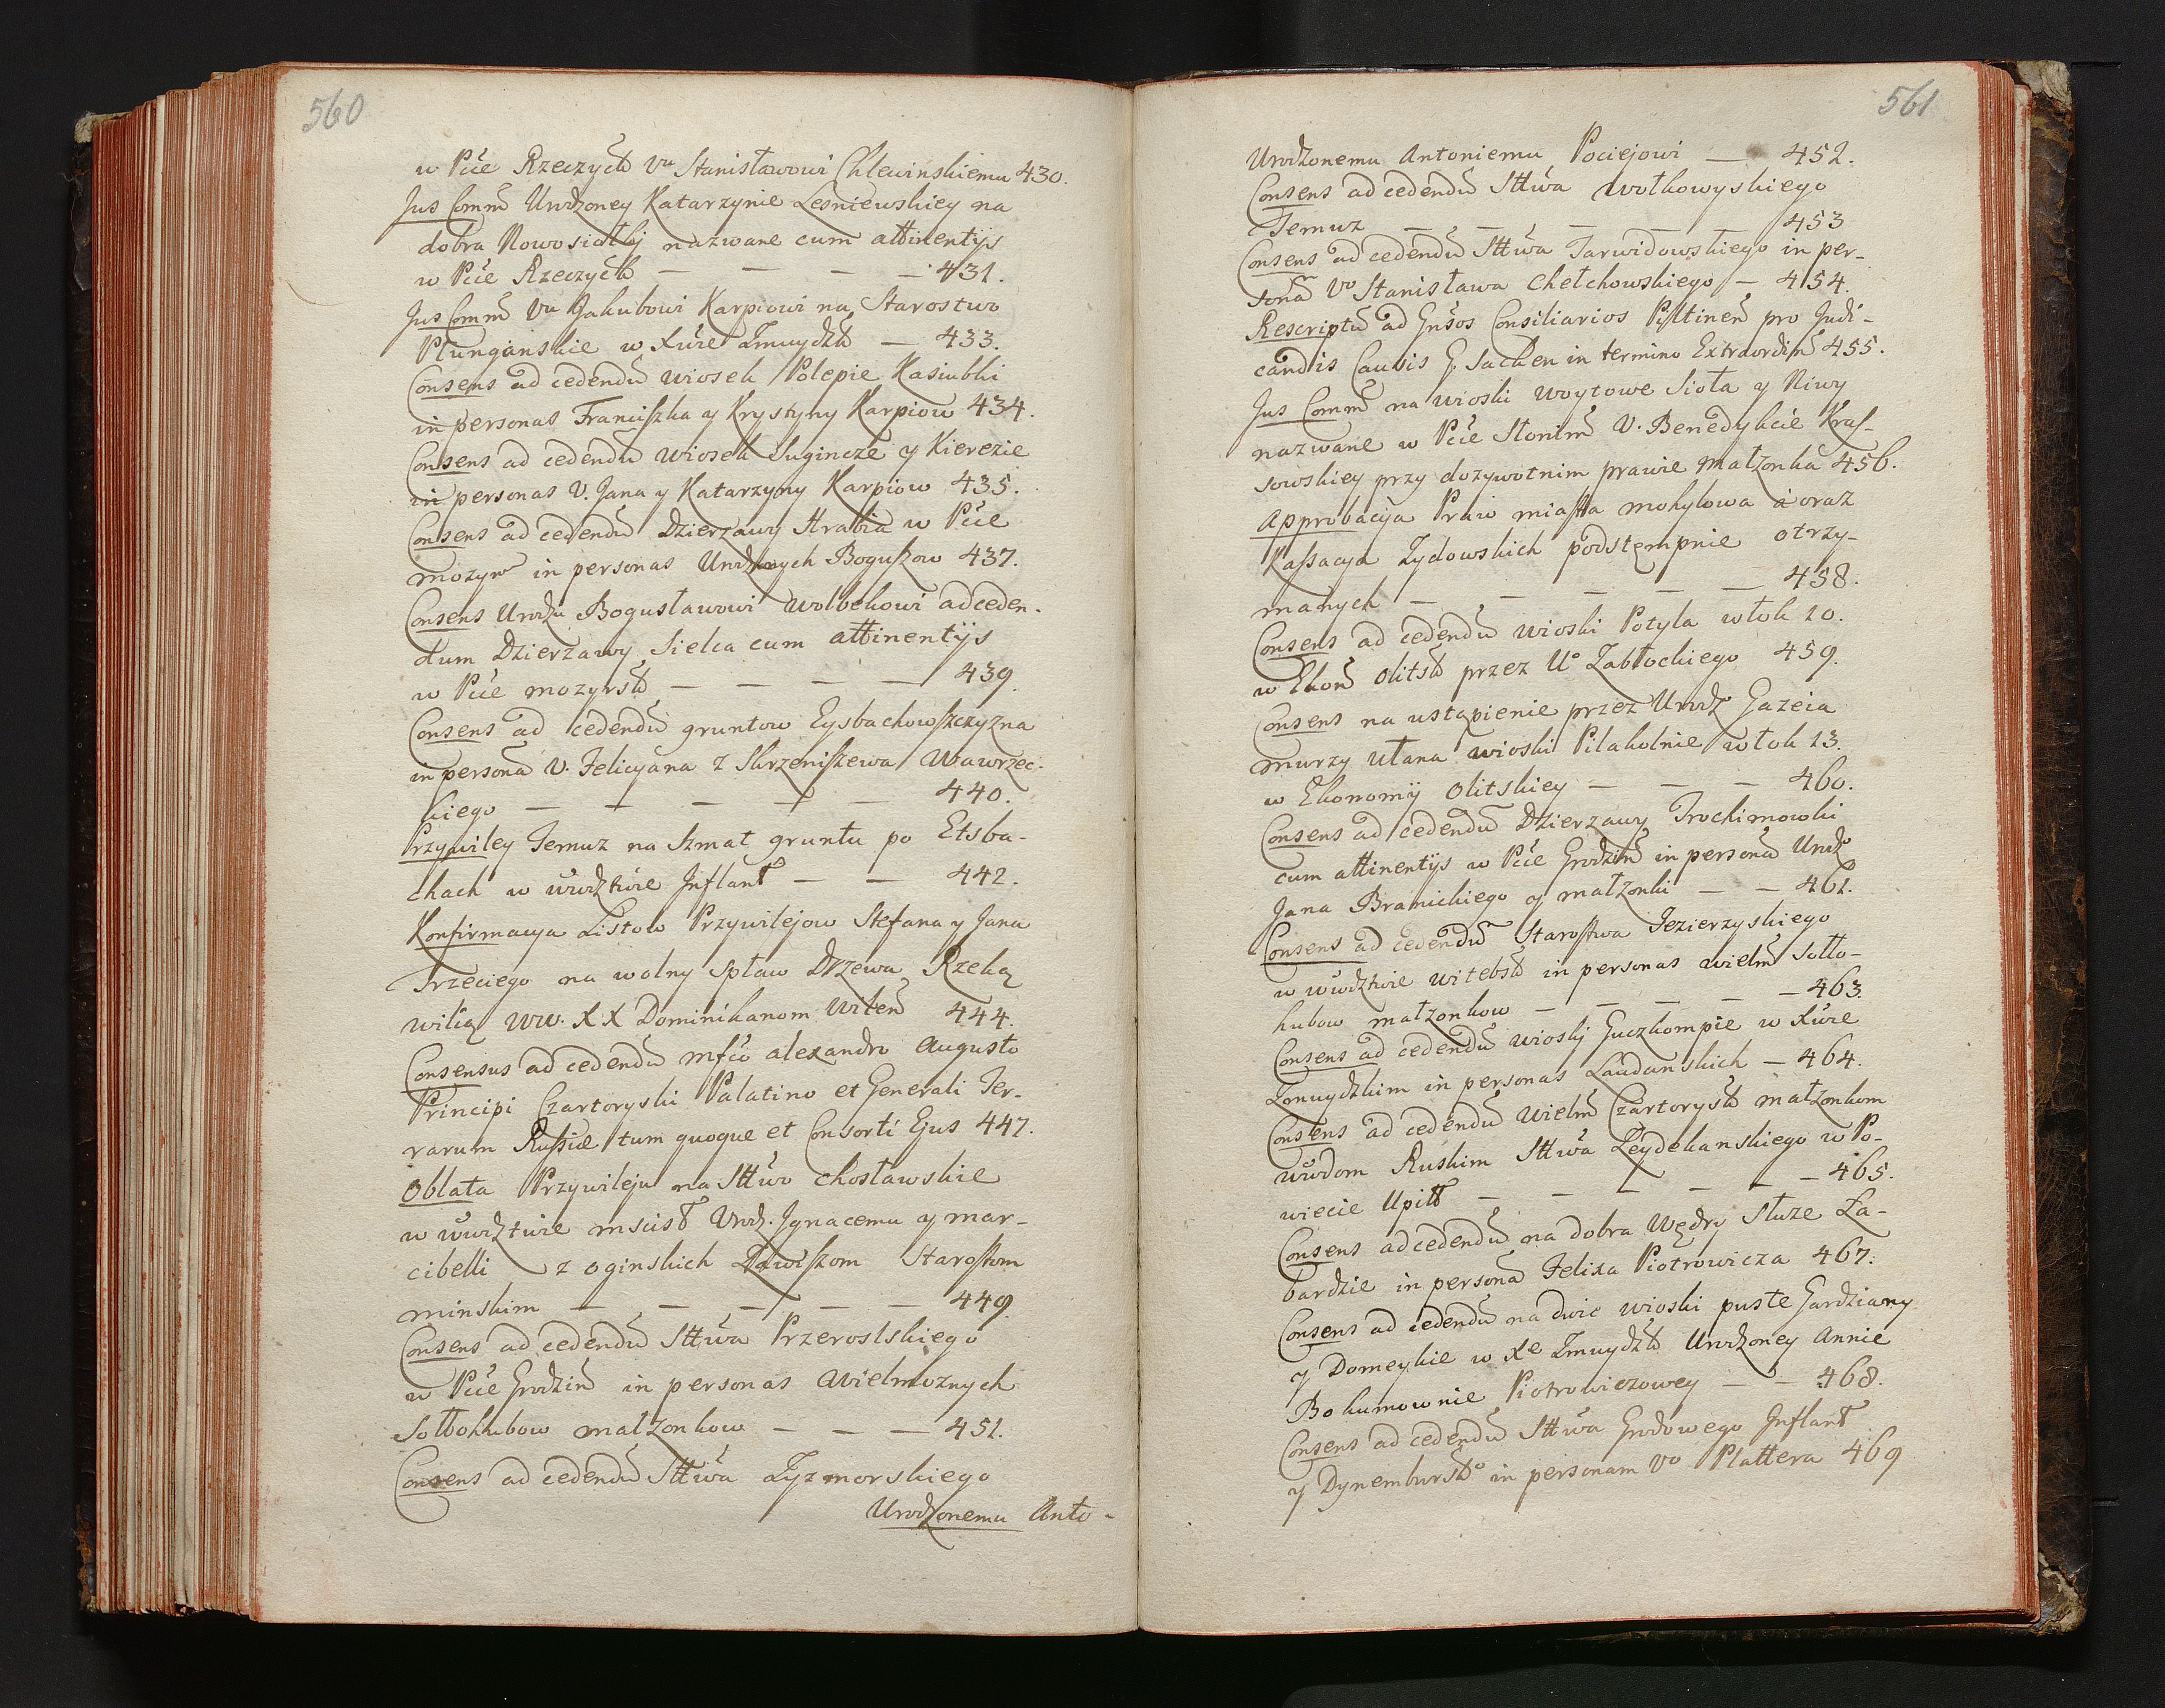 560
w Pcie Rzeczyck Vu Stanisławowi Chlewinskiemu 430.
Jus Comm Urodzoney Katarzynie Lesniewskiey na
dobra Nowosiołky nazwane cum attinentÿs
w Pcie Rzeczyck — — — — 431.
Jus Comm Vu Jakubowi Karpiowi na Starostwo
Płunganskie w Xůie Zmuydzk — 433.
Consens ad cedendu wiosek Polepie Kasiubki
in personas Franciszka y Krystyny Karpiow 434.
Consens ad cedendu wiosek Sugincze y Kierezie
in personas V. Jana y Katarzyny Karpiow 435.
Consens ad cedendu Dzierzawy Hrabia w Pcie
mozyr in personas Urodzonych Boguszow 437.
Consens Urodzu Bogusławowi Wolbekowi ad ceden-
dum Dzierzawy Sielca cum attinentÿs
w Pcie mozyrsk — — — — 439.
Consens ad cedendu gruntow Eysbachowszczyzna
in persona V. Felicyana z Skrzeniszewa Wawrzec-
kiego — — — — — 440.
Przywiley Jemuz na Szmat gruntu po Elsba-
chach w wwdztwie Inflant — — 442.
Konfirmacya Listow Przywilejow Stefana y Jana
Trzeciego na wolny spław Drzewa Rzeką
wilią WW. XX Dominikanom wilen 444.
Consensus ad cedendu Mfco alexandro Augusto
Principi Czartoryski Palatino et Generali Ter-
rarum Russiæ tum quoque et Consorti Ejus 447.
Oblata Przywileju na Sttwo Chosławskie
w wwdztwie mscisł Urodz. Ignacemu y mar-
cibelli z oginskich Zawiszom Starostom
minskim — — — — — 449
Consens ad cedendu Sttwa Przerostskiego
w Pcie Grodzin in personas Wielmoznych
Sołłohubow małzonkow — — — 451.
Consens ad cedendu Sttwa Zyzmorskiego
Urodzonemu Anto-
561
Urodzonemu Antoniemu Pociejowi — 452.
Consens ad cedendu Sttwa wołkowyskiego
Jemuz — — — — — 453
Consens ad cedendu Sttwa Jarwidowskiego in per-
sona Vo Stanisława Chełchowskiego — 454.
Rescriptu ad Gnsos Consiliarios Piltinen pro Judi-
candis Causis G. Sacken in termino Extraordin 455.
Jus Comm na wioski woytowe Sioła y Niwy
nazwane w Pcie Słonim V. Benedykcie Kras-
sowskiey przy dozywotnim prawie małzonka 456.
Approbacya Praw miasta mohylowa a oraz
Kassacya Zydowskich podstępnie otrzy-
manych — — — — — 458.
Consens ad cedendu wioski Potyla włok 20.
w Ekon olitsk przez Uo Zabłockiego 459.
Consens na ustąpienie przez Urodz Gazeia
murzy ułana wioski Pilakolnie włok 13.
w Ekonomÿ olitskiey — — — 460.
Consens ad cedendu Dzierzawy Trochimowki
cum attinentÿs w Pcie Grodzin in persona Urodz
Jana Branickiego y małzonki — — 461.
Consens ad cedendu Starostwa Jezierzyskiego
w wwdztwie witebsk in personas wielm Sołło-
hubow małzonkow — — — — — 463.
Consens ad cedendu wiosky Guczkompie w Xůie
Zmuydzkim in personas Laudanskich — 464.
Consens ad cedendu wielm Czartorysk małzonkom
wwdom Ruskim Sttwa Leydekanskiego w Po-
wiecie Upitt — — — — — — 465.
Consens ad cedendu na dobra Wędry Słuze Ła-
bardzie in persona Felixa Piotrowicza 467.
Consens ad cedendu na dwie wioski puste Gardziany
y Domeykie w Xe Zmuydzk Urodzoney Annie
Bohumownie Piotrowiczowey — — 468.
Consens ad cedendu Sttwa Grodowego Inflant
y Dynembursko in personam Vo Plattera 469